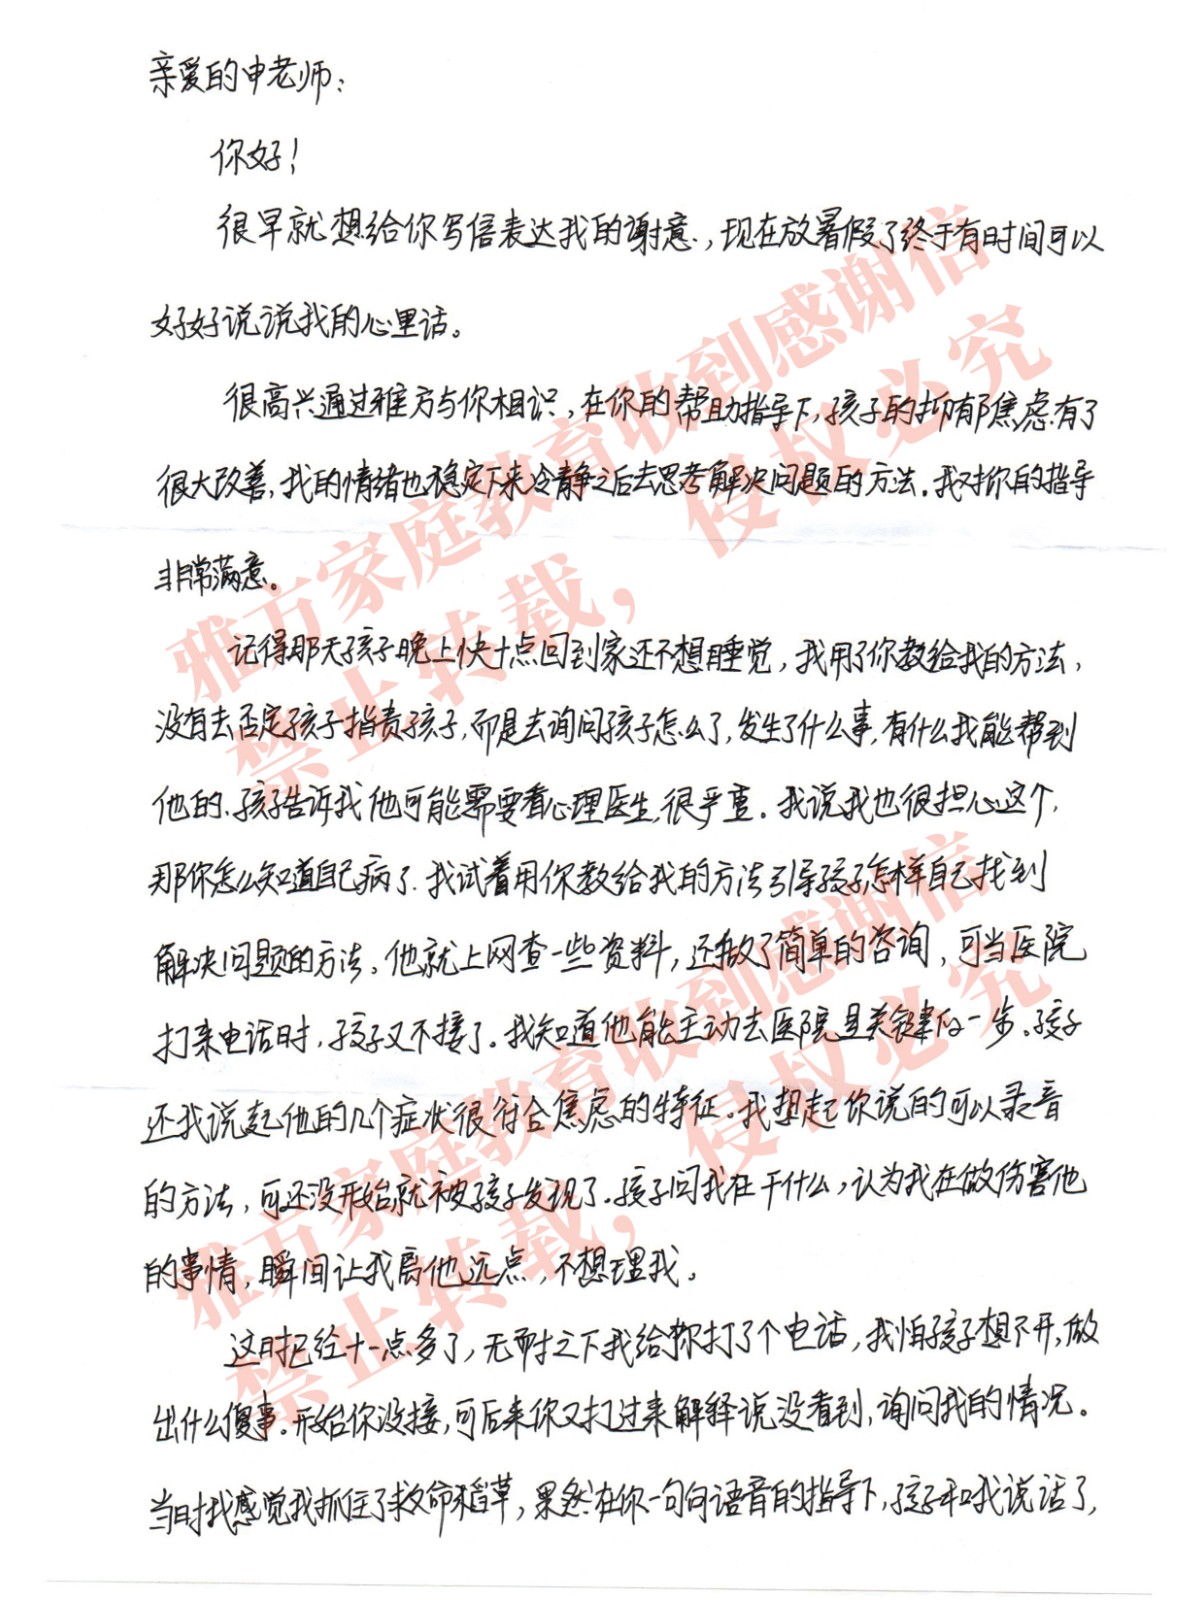 亲爱的申老师：
你好！
很早就想给你写信表达我的谢意，现在放暑假了终于有时间可以
好好说说我的心里话。
很高兴通过雅方与你相识，在你的帮助指导下，孩子的抑郁焦虑有了
很大改善，我的情绪也稳定下来冷静之后去思考解决问题的方法。我对你的指导
非常满意。
记得那天孩子晚上快十点回到家还不想睡觉，我用了你教给我的方法，
没有去否定孩子指责孩子，而是去询问孩子怎么了，发生了什么事，有什么我能帮到
他的，孩子告诉我他可能需要看心理医生，很严重。我说我也很担心这个，
那你怎么知道自己病了。我试着用你教给我的方法引导孩子怎样自己找到
解决问题的方法，他就上网查一些资料，还做了简单的咨询，可当医院
打来电话时，孩子又不接了。我知道他能主动去医院是关键的一步。孩子
还我说起他的几个症状很符合焦虑的特征。我想起你说的可以录音
的方法，可还没开始就被孩子发现了。孩子问我在干什么，认为我在做伤害他
的事情，瞬间让我离他远点，不想理我。
这时已经十一点多了，无奈之下我给你打了个电话，我怕孩子想不开，做
出什么傻事。开始你没接，可后来你又打过来解释说没看到，询问我的情况。
当时我感觉我抓住了救命稻草，果然在你一句句语音的指导下，孩子和我说话了，
雅方家庭教育收到感谢信
禁止转载，侵权必究
雅方家庭教育收到感谢信
禁止转载，侵权必究